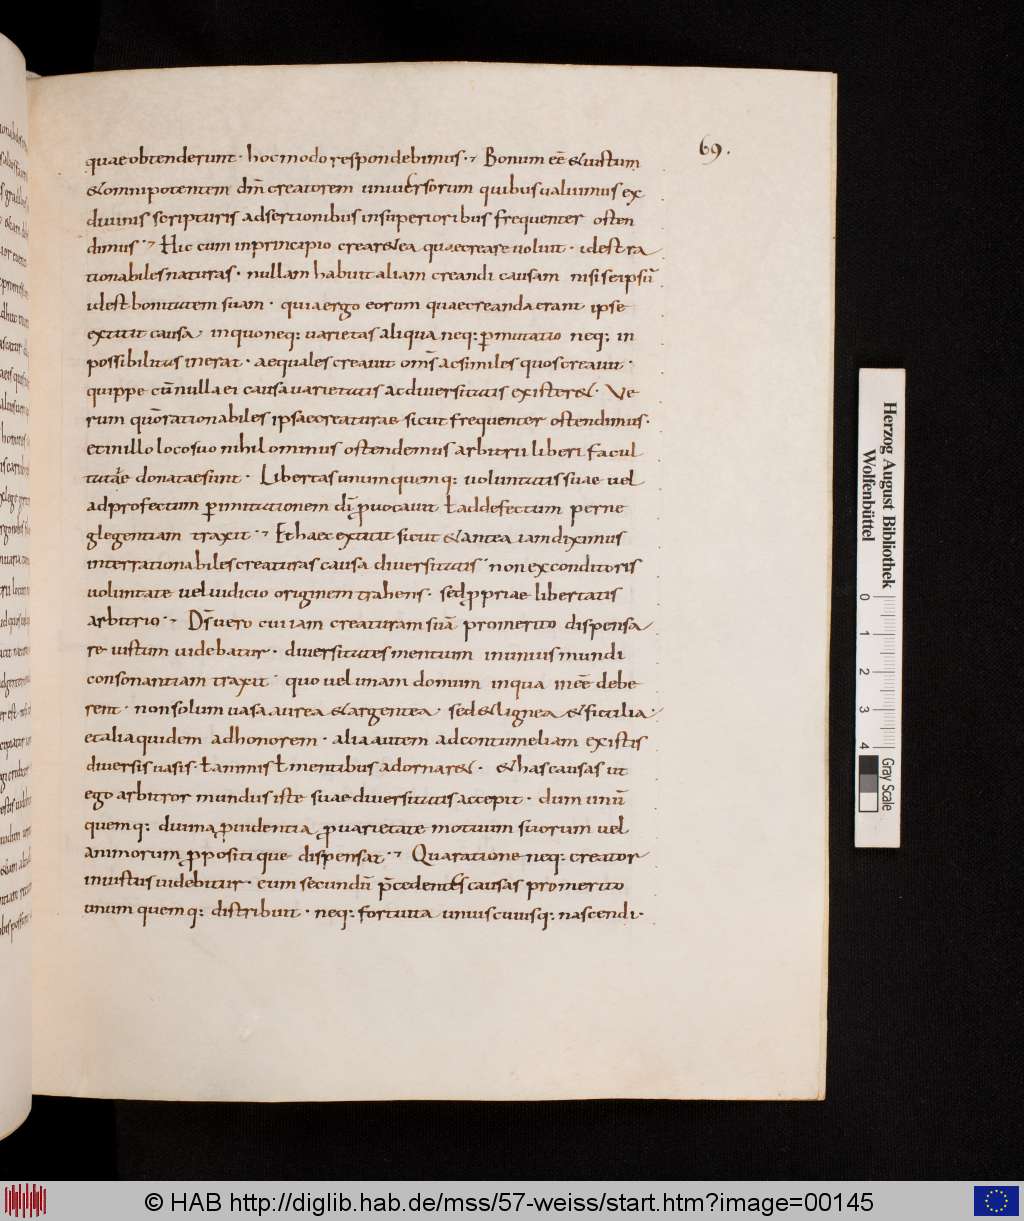 69.
quae obtenderunt · hoc modo respondebimus · Bonum eē & iustum
& omnipotentem dm̄ creatorem uniuersorum quibus ualuimus ex
diuinis scripturis adsertionibus in superioribus frequenter osten
dimus · Hic cum in principio crear& ea quae creare uoluit · id est ra
tionabiles naturas · nullam habuit aliam creandi causam nisi se ipsū
id est bonitatem suam · quia ergo eorum quae creanda erant ipse
extitit causa · in quo neq: uarietas aliqua neq: p̄mutatio neq: in
possibilitas inerat · aequales creauit om̄s ac similes quos creauit ·
quippe cū nulla ei causa uarietatis ac diuersitatis exister& · Ve
rum qūo rationabiles ipsae creaturae sicut frequenter ostendimus ·
et in illo loco suo nihilominus ostendemus arbitrii liberi facul
tatae donatae sunt · Libertas unum quemq: uoluntatis suae uel
ad profectum p̄mitationem dī ꝓuocauit ł ad defectum per ne
glegentiam traxit · Et haec extitit sicut & antea iam diximus
inter rationabiles creaturas causa diuersitatis · non ex conditoris
uoluntate uel iudicio originem trahens · sed ꝓpriae libertatis
arbitrio · Ds̄ uero cui iam creaturam suā pro merito dispensa
re iustum uidebatur · diuersitates mentium in unius mundi
consonantiam traxit · quo uel unam domum in qua ineē debe
rent · non solum uasa aurea & argentea · sed & lignea & fictilia ·
et alia quidem ad honorem · alia autem ad contumeliam ex istis
diuersis uasis · ł animis ł mentibus adornar& · & has causas ut
ego arbitror mundus iste suae diuersitatis accepit · dum unū
quemq: diuina ꝓuidentia ꝓ uarietate motuum suorum uel
animorum ꝓpositique dispensat · Qua ratione neq: creator
iniustus uidebitur · cum secundū p̄cedentes causas pro merito
unum quemq: distribuit · neq: fortuita unius cuiusq: nascendi ·
Herzog August Bibliothek
Wolfenbüttel
0 1 2 3 4
Gray Scale
© HAB http://diglib.hab.de/mss/57-weiss/start.htm?image=00145